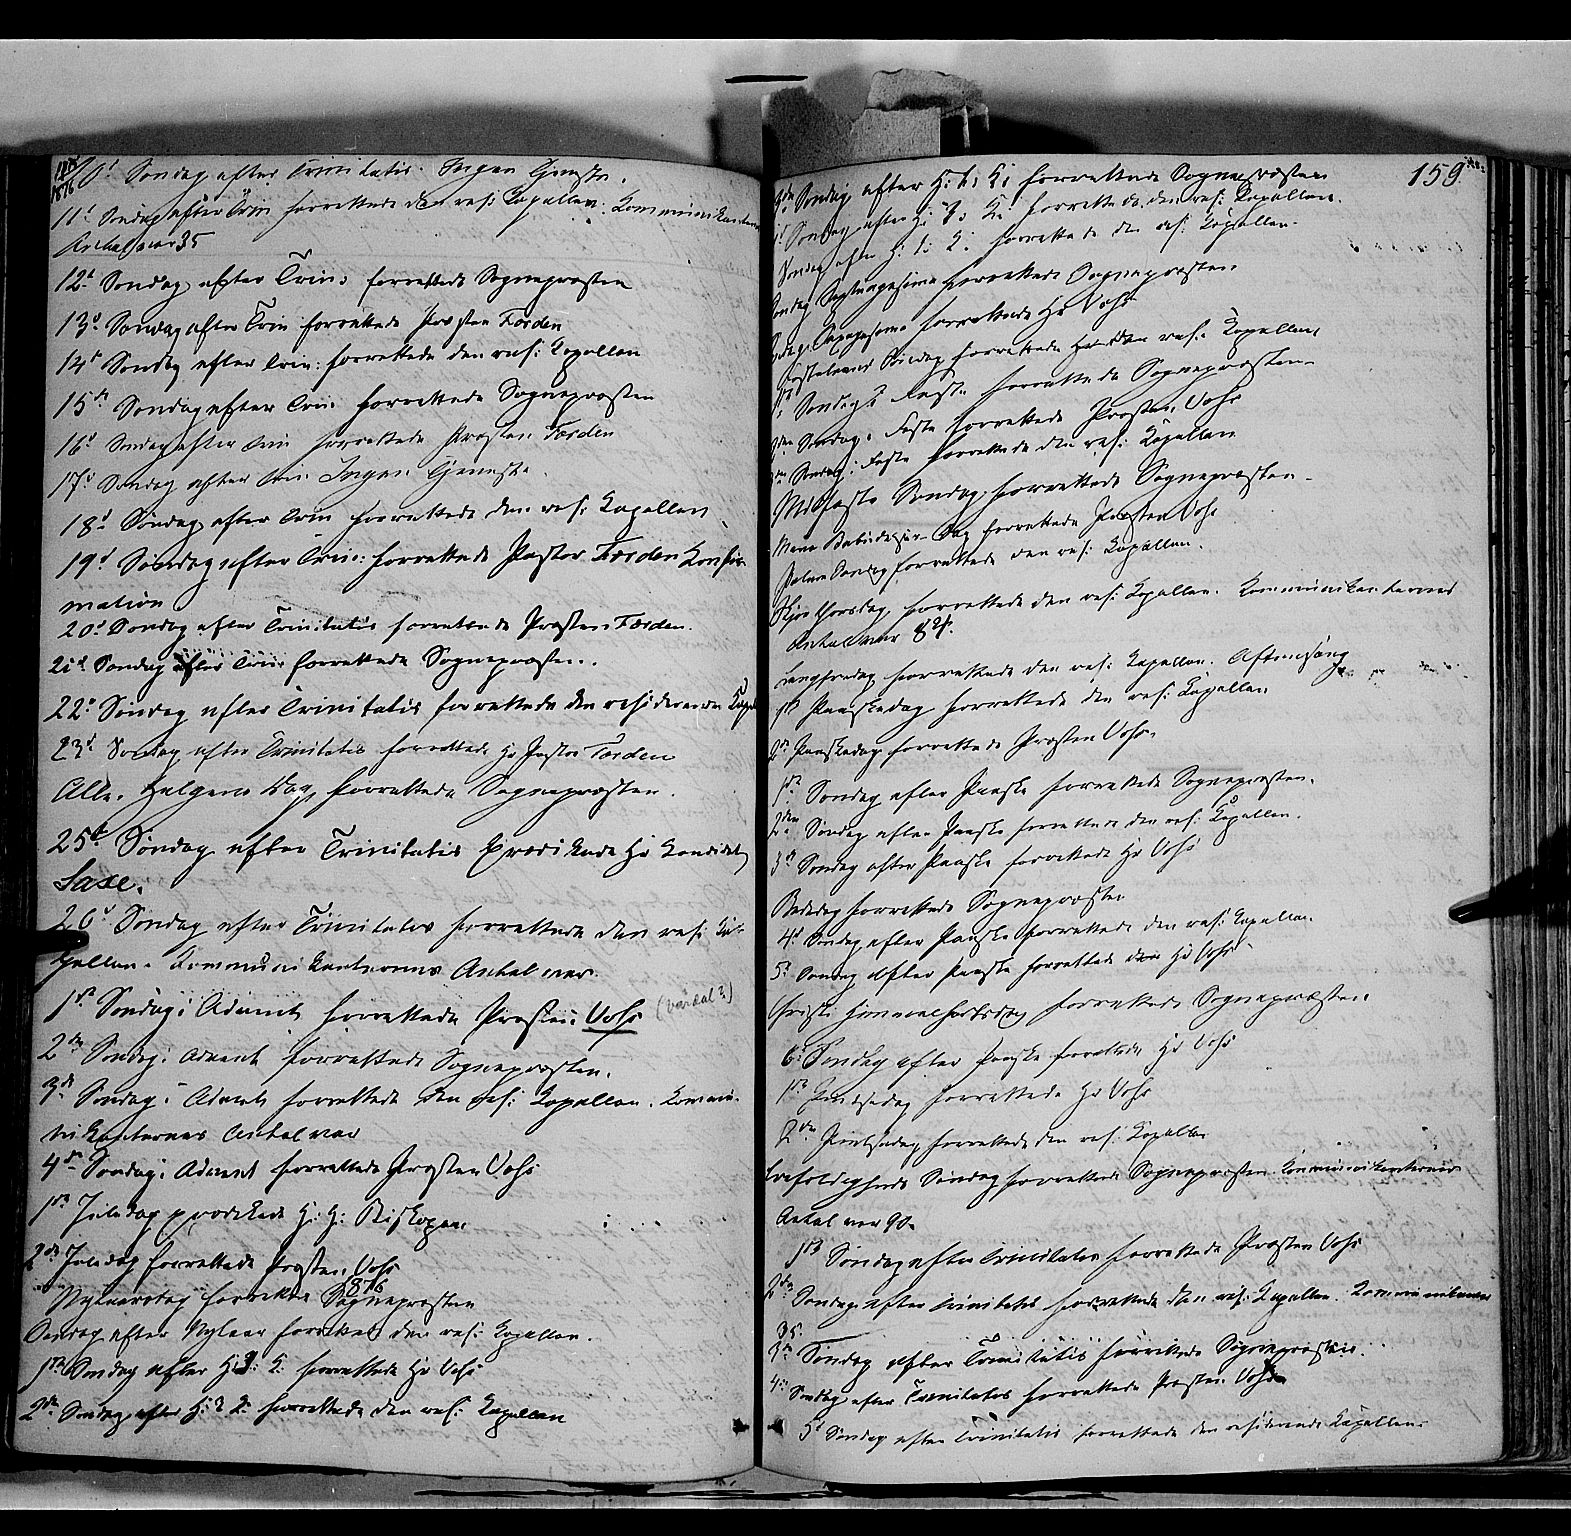 10d Søndag efter Trinitatis. Ingen Tjeneste.
11t Søndag efter Trin forrettede den resi: Capellan. Kommunikanternes
Antal var 35
12t Søndag efter Trin: forrettede Sognepræsten
13d Søndag efter Trin forrettede Præsten Forden
14d Søndag efter Trin: forrettede den resi: Kapellan
15de Søndag efter Trin: forrettede Sognepræsten
16d Søndag efter Trin forrettede Præsten Forden
17d Søndag efter Trin: Ingen Tjeneste.
18d Søndag efter Trin forrettede den resi: Kapellan
19d Søndag efter Trin: forrettede Pastor Forden Konfir
mation
20d Søndag efter Trinitatis forrettede Præsten Forden.
21d Søndag efter Trin: forrettede Sognepræsten.
22d Søndag efter Trinitatis forrettede den residerende Kapel
23d Søndag efter Trinitatis forrettede Hr Pastor Forden
Alle Helgens Dag forrettede Sognepræsten.
25d Søndag efter Trinitatis prædikede Hr Kandidat
Saxe.
26d Søndag efter Trinitatis forrettede den resi: Ka-
pellan. Kommunikanternes Antal var.
1ste Søndag i Advent forrettede Præsten Vohs
2den Søndag i Advent forrettede Sognepræsten.
3de Søndag i Advent forrettede den resi: Kapellan. Kommu-
nikanternes Antal var
4de Søndag i Advent forrettede Præsten Vohs
1ste Juledag prædikede H: H: Biskopen.
2den Juledag forrettede Præsten Vohs
1876
Nytaarsdag forrettede Sognepræsten
Søndag efter Nytaar forrettede den resi: Kapellan.
1ste Søndag efter H: 3: K. forrettede Hr Vohs
2den Søndag efter H: 3 K: forrettede den resi: Kapellan
159
3die Søndag efter H: 3: K: forrettede Sognepræsten
Søndag efter H: 3: K: forrettede den resi: Kapellan.
Søndag efter H: 3: K: forrettede den resi: Kapellan.
Søndag Septuagesima forrettede Sognepræsten
Søndag Sexagesima forrettede Hr Vohs
Fastelavns Søndag forrettede den resi: Kapellan
1ste Søndag i Faste forrettede Sognepræsten
2den Søndag i Faste forrettede Præsten Vohs
3die Søndag i Faste forrettede den resi: Kapellan
Midfaste Søndag forrettede Sognepræsten.
Mariæ Bebudelses Dag forrettede Præsten Vohs
Palme Søndag forrettede den resi: Kapellan.
Skjærthorsdag forrettede den resi: Kapellan. Kommunikanternes
Antal var 82.
Langfredag forrettede den resi: Kapellan. Aftensang
1ste Paaskedag forrettede den resi: Kapellan
2den Paaskedag forrettede Præsten Vohs.
1ste Søndag efter Paaske forrettede Sognepræsten.
2den Søndag efter Paaske forrettede den resi: Kapellan.
3die Søndag efter Paaske forrettede Hr Vohs
Bededag forrettede Sognepræsten
4d Søndag efter Paaske forrettede den resi: Kapellan.
5t Søndag efter Paaske forrettede Hr Vohs
Christi Himmelfartsdag forrettede Sognepræsten.
6t Søndag efter Paaske forrettede Hr Vohs
1ste Pintsedag forrettede Hr Vohs
2den Pintsedag forrettede den resi: Kapellan
Trefoldigheds Søndag forrettede Sognepræsten Kommunikanternes
Antal var 90.
1ste Søndag efter Trinitatis forrettede Præsten Vohs
2den Søndag efter Trinitatis forrettede den resi: Kapellan. Kommunikanter
35.
3die Søndag efter Trinitatis forrettede Sognepræsten.
4de Søndag efter Trinitatis forrettede Præsten Vohs
5t Søndag efter Trinitatis forrettede den residerende Kapellan.